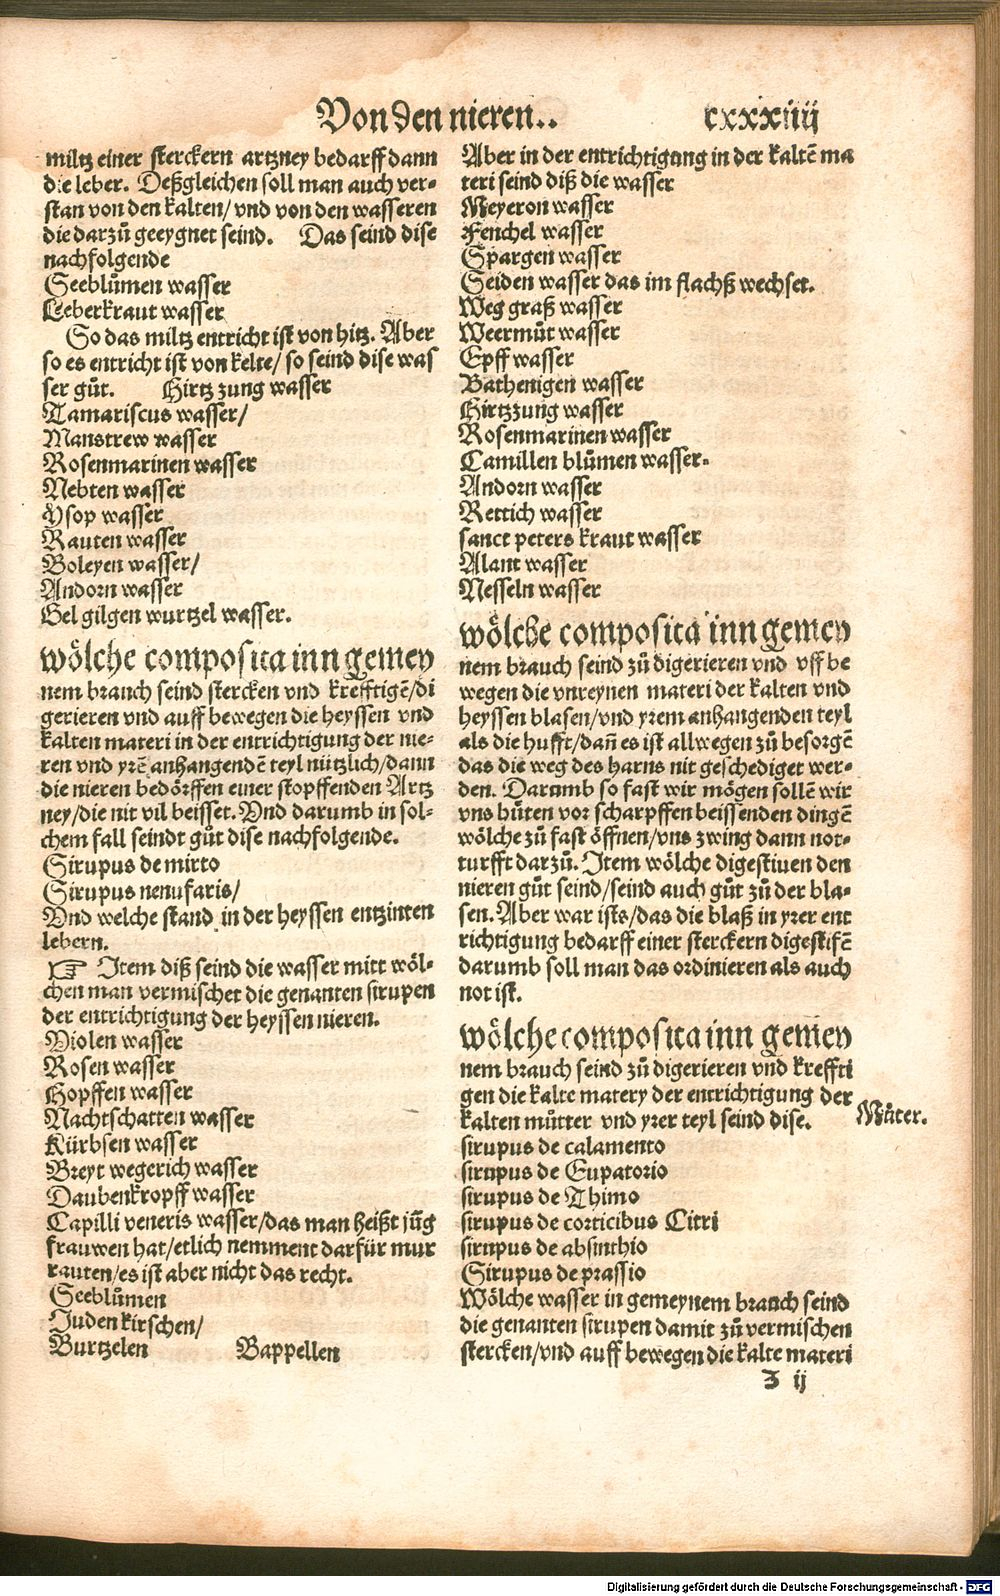 Von den nieren..
cxxxiiij
miltz einer sterckern artzney bedarff dann
die leber. Deßgleichen soll man auch ver-
stan von den kalten/ vnd von den wasseren
die darzů geeygnet seind. Das seind dise
nachfolgende
Seeblůmen wasser
Leberkraut wasser
So das miltz entricht ist von hitz. Aber
so es entricht ist von kelte/ so seind dise was
ser gůt. Hirtz zung wasser
Tamariscus wasser/
Manstrew wasser
Rosenmarinen wasser
Nebten wasser
Ysop wasser
Rauten wasser
Boleyen wasser/
Andorn wasser
Gel gilgen wurtzel wasser.
wölche composita inn gemey
nem brauch seind stercken vnd krefftigē/di
gerieren vnd auff bewegen die heyssen vnd
kalten materi in der entrichtigung der nie-
ren vnd yrē anhangendē teyl nützlich/dann
die nieren bedörffen einer stopffenden Artz
ney/die nit vil beisset. Vnd darumb in sol-
chem fall seindt gůt dise nachfolgende.
Sirupus de mirto
Sirupus nenufaris/
Vnd welche stand in der heyssen entzinten
lebern.
☞ Item diß seind die wasser mitt wöl-
chen man vermischet die genanten sirupen
der entrichtigung der heyssen nieren.
Violen wasser
Rosen wasser
Hopffen wasser
Nachtschatten wasser
Kürbsen wasser
Breyt wegerich wasser
Daubenkropff wasser
Capilli veneris wasser/das man heißt jūg
frauwen hat/etlich nemment darfür mur
rauten/es ist aber nicht das recht.
Seeblůmen
Juden kirschen/
Burtzelen Bappellen
Aber in der entrichtigung in der kaltē ma
teri seind diß die wasser
Meyeron wasser
Fenchel wasser
Spargen wasser
Seiden wasser das im flachß wechset.
Weg graß wasser
Weermůt wasser
Epff wasser
Bathenigen wasser
Hirtzzung wasser
Rosenmarinen wasser
Camillen blůmen wasser.
Andorn wasser
Rettich wasser
sanct peters kraut wasser
Alant wasser
Nesseln wasser
wölche composita inn gemey
nem brauch seind zů digerieren vnd vff be
wegen die vnreynen materi der kalten vnd
heyssen blasen/vnd yrem anhangenden teyl
als die hufft/dañ es ist allwegen zů besorgē
das die weg des harns nit geschediget wer-
den. Darumb so fast wir mögen sollē wir
vns hůten vor scharpffen beissenden dingē
wölche zů fast öffnen/vns zwing dann not-
turfft darzů. Item wölche digestiuen den
nieren gůt seind/seind auch gůt zů der bla-
sen. Aber war ists/das die blaß in yrer ent
richtigung bedarff einer sterckern digestifē
darumb soll man das ordinieren als auch
not ist.
wölche composita inn gemey
nem brauch seind zů digerieren vnd kreffti
gen die kalte matery der entrichtigung der
kalten můtter vnd yrer teyl seind dise.
Můter.
sirupus de calamento
sirupus de Eupatorio
sirupus de Thimo
sirupus de corticibus Citri
sirupus de absinthio
Sirupus de prassio
Wölche wasser in gemeynem brauch seind
die genanten sirupen damit zů vermischen
stercken/vnd auff bewegen die kalte materi
Z ij
Digitalisierung gefördert durch die Deutsche Forschungsgemeinschaft - DFG